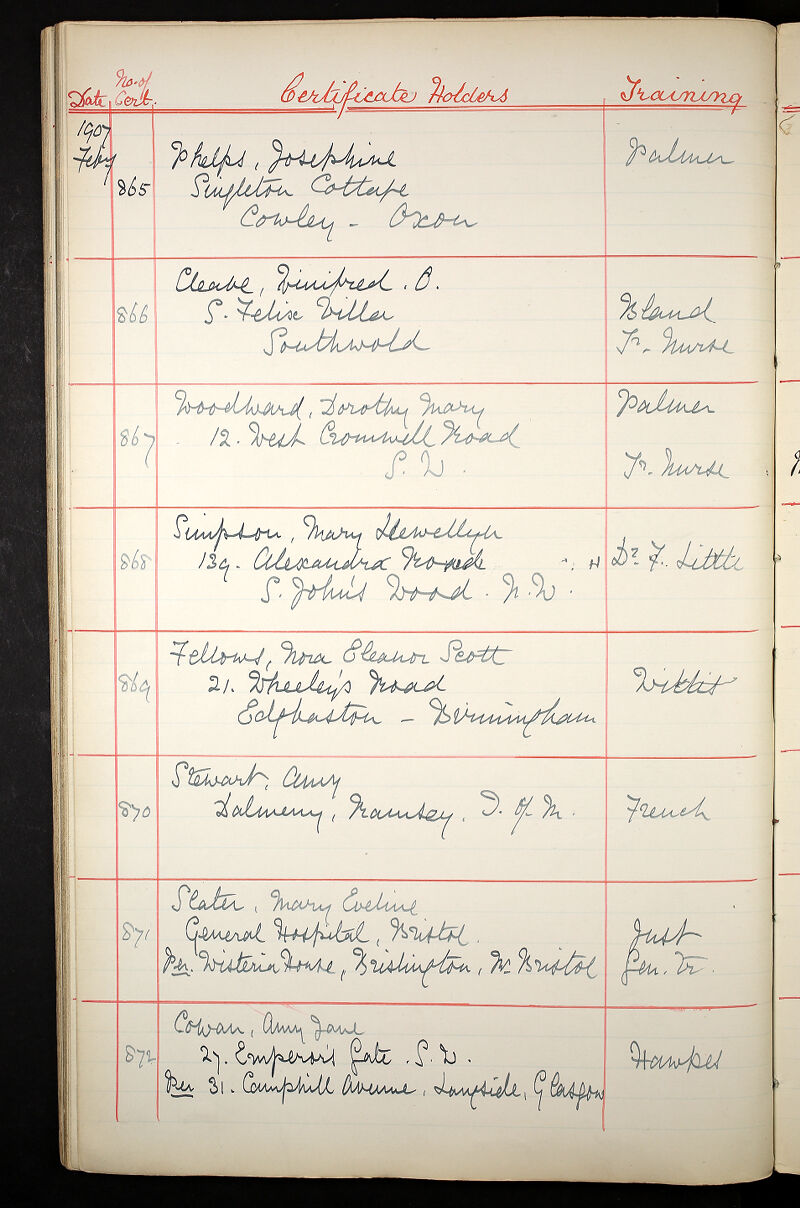 Date No. of Cert. Certificate Holders Training
1907
Feby Phelps, Josephine Palmer
865 Singleton Cottage
Cowley - Oxon
Cleave, Winifred. O.
866 S. Felix Villa Bland
Southwold Tr. Nurse
Woodward, Dorothy Mary Palmer
867 12. West Cromwell Road
S. W. Tr. Nurse
Simpson, Mary Llewellyn
868 139. Alexandra Road Dr. F. Little
S. John's Wood. N. W.
Fellows, Nora Eleanor Scott
869 21. Wheeley's Road
Edgbaston - Birmingham
Stewart, Amy
870 Dalmeny, Ramsey, I. of M. French
Slater, Mary Eveline
871 General Hospital, Bristol. Just
Per. Wisteria House, Brislington, Nr. Bristol Gen. Tr.
Cowan, Amy Jane
872 27. Emperor's Gate. S. W. Hawkes
Per 31. Camphill Avenue, Langside, Glasgow